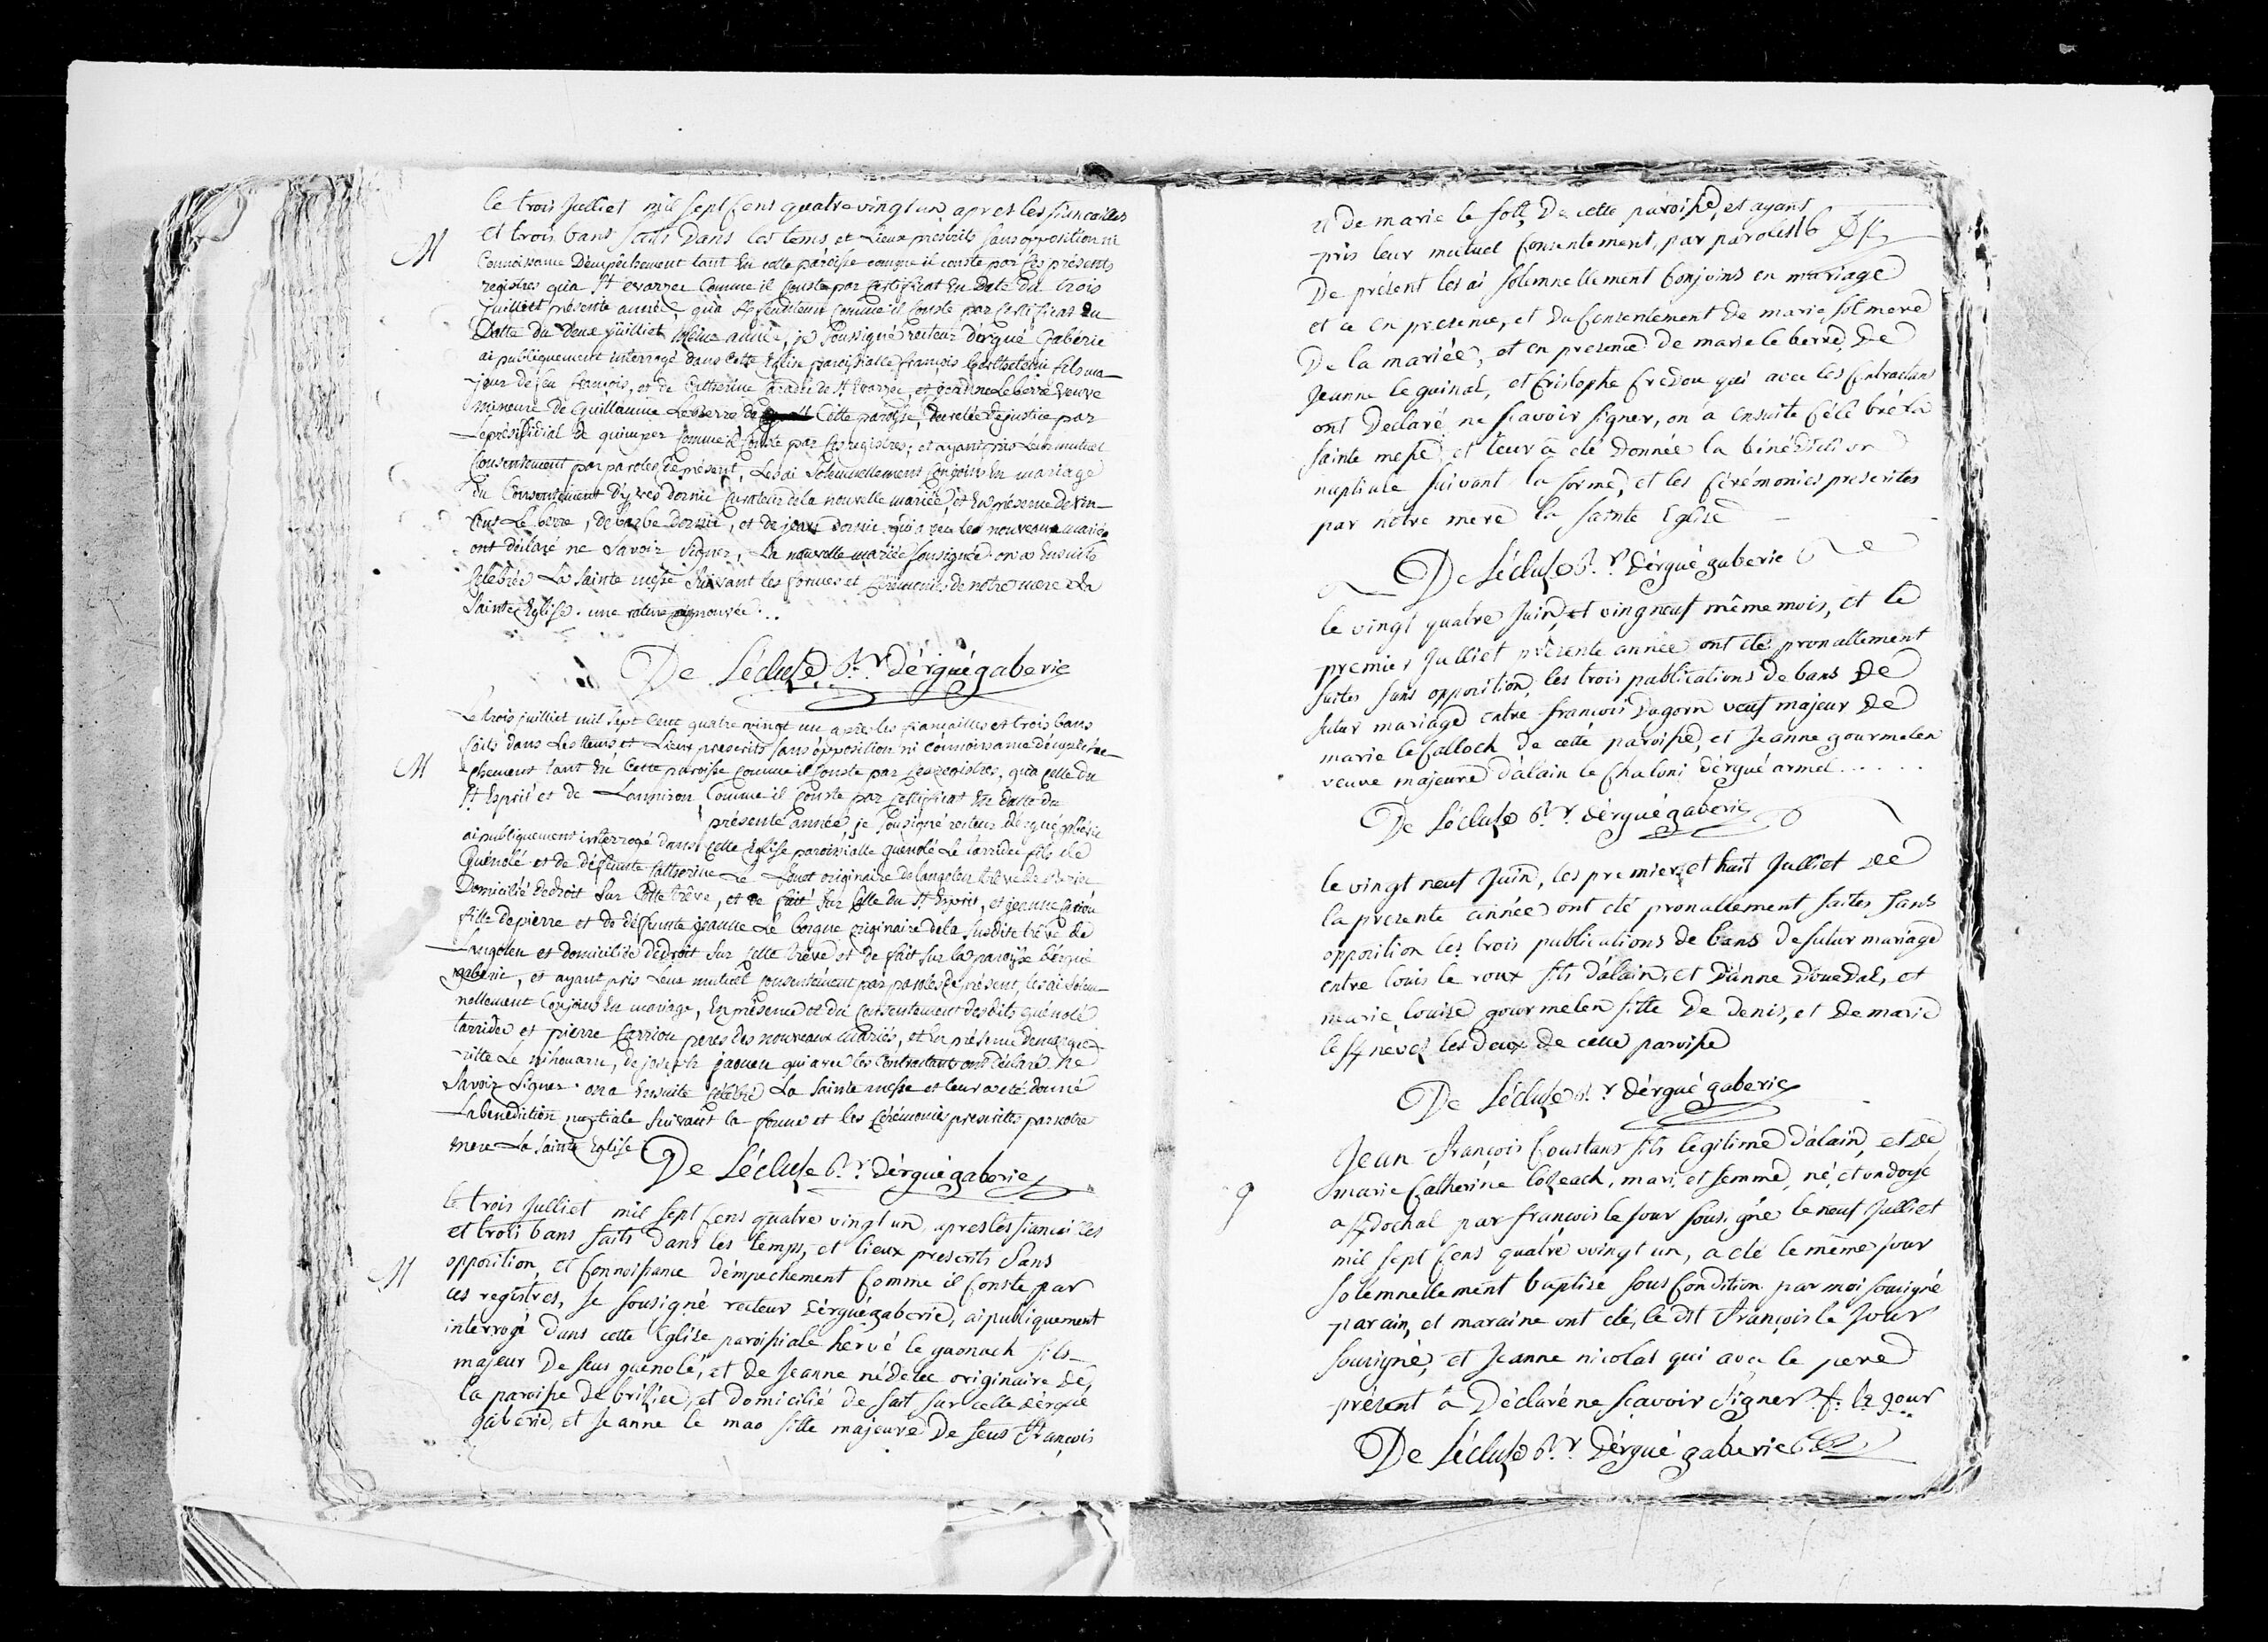 Le trois Julliet mil sept cens quatre vingt un apres les fiancailles
M
et trois bans faits dans les tems et Lieux prescrits sans opposition ni
Connoissance D'empêchement tant En cette paroisse comme il conste par ses présents
registres qu'a St evarzec Comme il Conste par Certificat En Date du trois
Juilliet présente année, qu'a comme il conste par Certificat En
Datte du Deux juilliet même année, je soussigné recteur d'ergué Gabéric
ai publiquement interrogé dans Cette Eglise paroissialle françois fils ma-
jeur de feu francois, et de Catherine de St Evarzec, et Le berre veuve
mineure de Guillaume Le berre de Cette paroisse, Decretée de justice par
Le présidial de quimper Comme il Conste par Ces registres; et ayant pris Leur mutuel
Consentement par paroles de présent, Les ai Solemnellement Conjoins En mariage
Du Consentement D'yves dornic Curateur de la nouvelle mariée, et En présence de vin-
cent Le berre, de barbe Dornic, et de jean dornic qui avec les nouveaux mariés
ont déclaré ne savoir signer, La nouvelle mariée sousignée on a Ensuite
Célébrée La sainte messe suivant les formes et Cérémonies de notre mere La
Sainte Eglise. une rature approuvée..
De Lécluse Rr. D'érgué gaberic
Le trois juilliet mil sept Cent quatre vingt un après les fiançailles et trois bans
M
faits dans Les tems et Lieux prescrits sans opposition ni connoissance d'empêche-
chement tant En Cette paroisse comme il Conste par Ces registres, qu'a Celle du
St Esprit et de Comme il Conste par Certificat En datte du
présente année, je Sousigné recteur d'ergué gabéric
ai publiquement interrogé dans Cette Eglise paroissialle guénolé Le tarridec fils de
Guénolé et de défeunte Catherine Le originaire de langolen trêve de
Domicilié de droit Sur Cette trêve, et de fait Sur Celle du St Esprit, et jeanne Carriou
fille de pierre et de défeunte jeanne Le borgne originaire de la Susdite trêve de
Langolen et domiciliée de droit Sur Cette trêve et de fait Sur la paroisse d'ergué
gabéric, et ayant pris Leur mutuel Consentement par paroles de présent, les ai Solem-
nellement Conjoins En mariage, En présence et du Consentement desdits guénolé
tarridec et pierre Carriou peres des nouveaux mariés, et En présence de
Le nihouarn, de joseph jaouen qui avec les Contractants ont déclaré ne
Savoir Signer. on a Ensuite célébré La Sainte messe et leur a été donné
La bénédiction nuptiale Suivant la forme et les Cérémonies prescrites par notre
mere La Sainte Eglise
De Lécluse Rr. D'érgué gaberic
Le trois Julliet mil sept cens quatre vingt un, apres les fiancailles
et trois bans faits dans les temps, et lieux prescrits Sans
M
opposition, et Connoissance d'émpechement Comme il Conste par
ces registres, Je sousigné recteur d'érgué gaberic, ai publiquement
intérrogé dans cette Eglise paroissiale hervé le guonach fils
majeur De feus guénolé, et de Jeanne nédélec originaire de
la paroisse de briziec, et domicilié de fait sur celle d'érgué
gaberic, et Jeanne le mao fille majeure De feus François
et de marie le soll De cette paroisse, et ayant
pris leur mutuel Consentement, par paroles
De présent les ai solemnellement Conjoins en mariage
et ce en presence, et Du Consentement de marie sol mere
De la mariée, et en presence de marie le berre, De
Jeanne le guinal, et Cristophe Credou qui avec les Contractans
ont Declaré ne scavoir signer, on a Ensuite Célébré la
sainte messe, et leur a été Donnée la bénédiction
nuptiale suivant la forme, et les Cérémonies prescrites
par nôtre mere la sainte Eglise
De Lécluse Rr. D'érgué gaberic
le vingt quatre Juin, et vingneuf même mois, et le
premier Julliet présente année ont été pronallement
faites sans opposition, les trois publications de bans De
futur mariage entre françois Dagorn veuf majeur De
marie le Calloch de cette paroisse, et Jeanne gourmelen
veuve majeure d'alain le Chaloni d'érgué armel.....
De Lécluse Rr. D'érgué gaberic
le vingt neuf Juin, les premier, et huit Julliet De
la presente année ont été pronallement faites sans
opposition les trois publications de bans De futur mariage
entre louis le roux fils d'alain, et D'anne Douedal, et
marie louise gourmelen fille De Denis, et De marie
le les Deux de cette paroisse
De Lécluse Rr. D'érgué gaberic
Jean François Coustans fils legitime d'alain, et De
9
marie Catherine lozeach, mari, et femme, né, et ondoyé
a par francois le Jour sousigné le neuf Julliet
mil sept cens quatre vvingt un, a été le même jour
solemnellement baptisé sous Condition par moi sousigné
parain, et maraine ont été, le dit François le Jour
sousigné, et Jeanne nicolas qui avec le pere
présent a Déclaré ne scavoir signer f. le gour
De Lécluse Rr. D'érgué gaberic